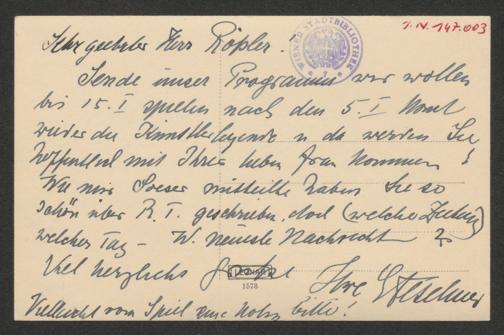 I.N. 147.003
WIENER STADTBIBLIOTHEK
Sehr geehrter Herr Rößler!
Sende unser Programm wir wollen
bis 15. I spielen nach den 5. I kommt
wieder die Künstlerlegende u da werden Sie
hoffentlich mit Ihrer lieben Frau kommen!
Wie mir Soeser mitteilte haben Sie so
schön über R. T. geschrieben, doch (welche Zeitung)
welcher Tag – W. neueste Nachricht ?
Viel herzliche Grüße
Ihre
1578
Vielleicht vom Spiel eine Notiz bitte!